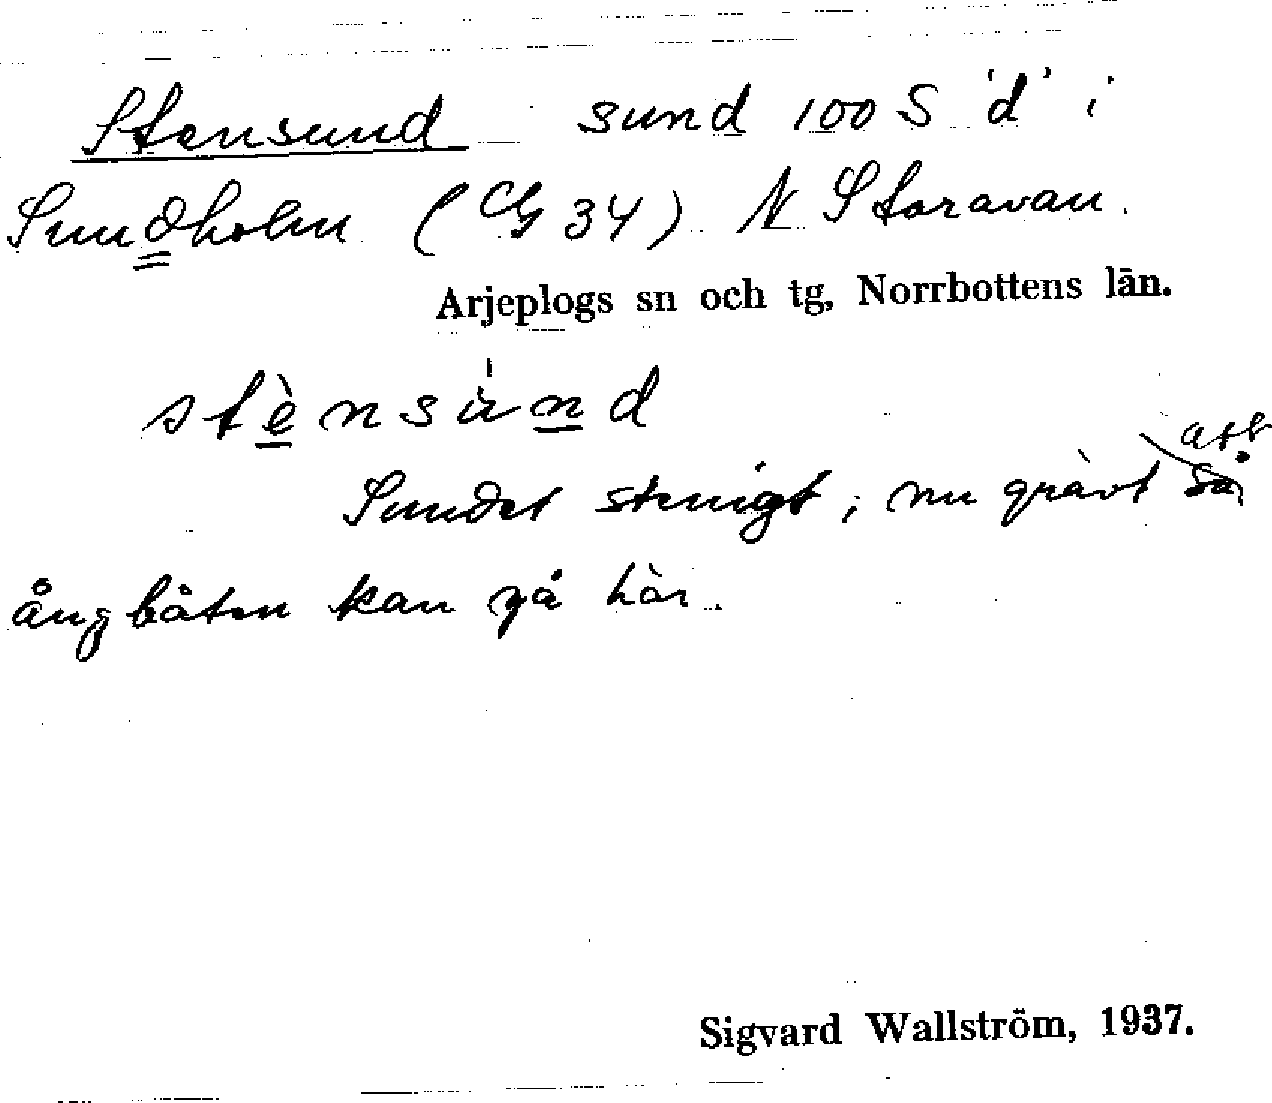 Stensund sund 100 S 'd' i
Sundholm (CG 34) N Storavan.
Arjeplogs sn och tg, Norrbottens län.
stènsùnd
Sundet stenigt, nu grävt så att
ångbåten kan gå här.
Sigvard Wallström, 1937.